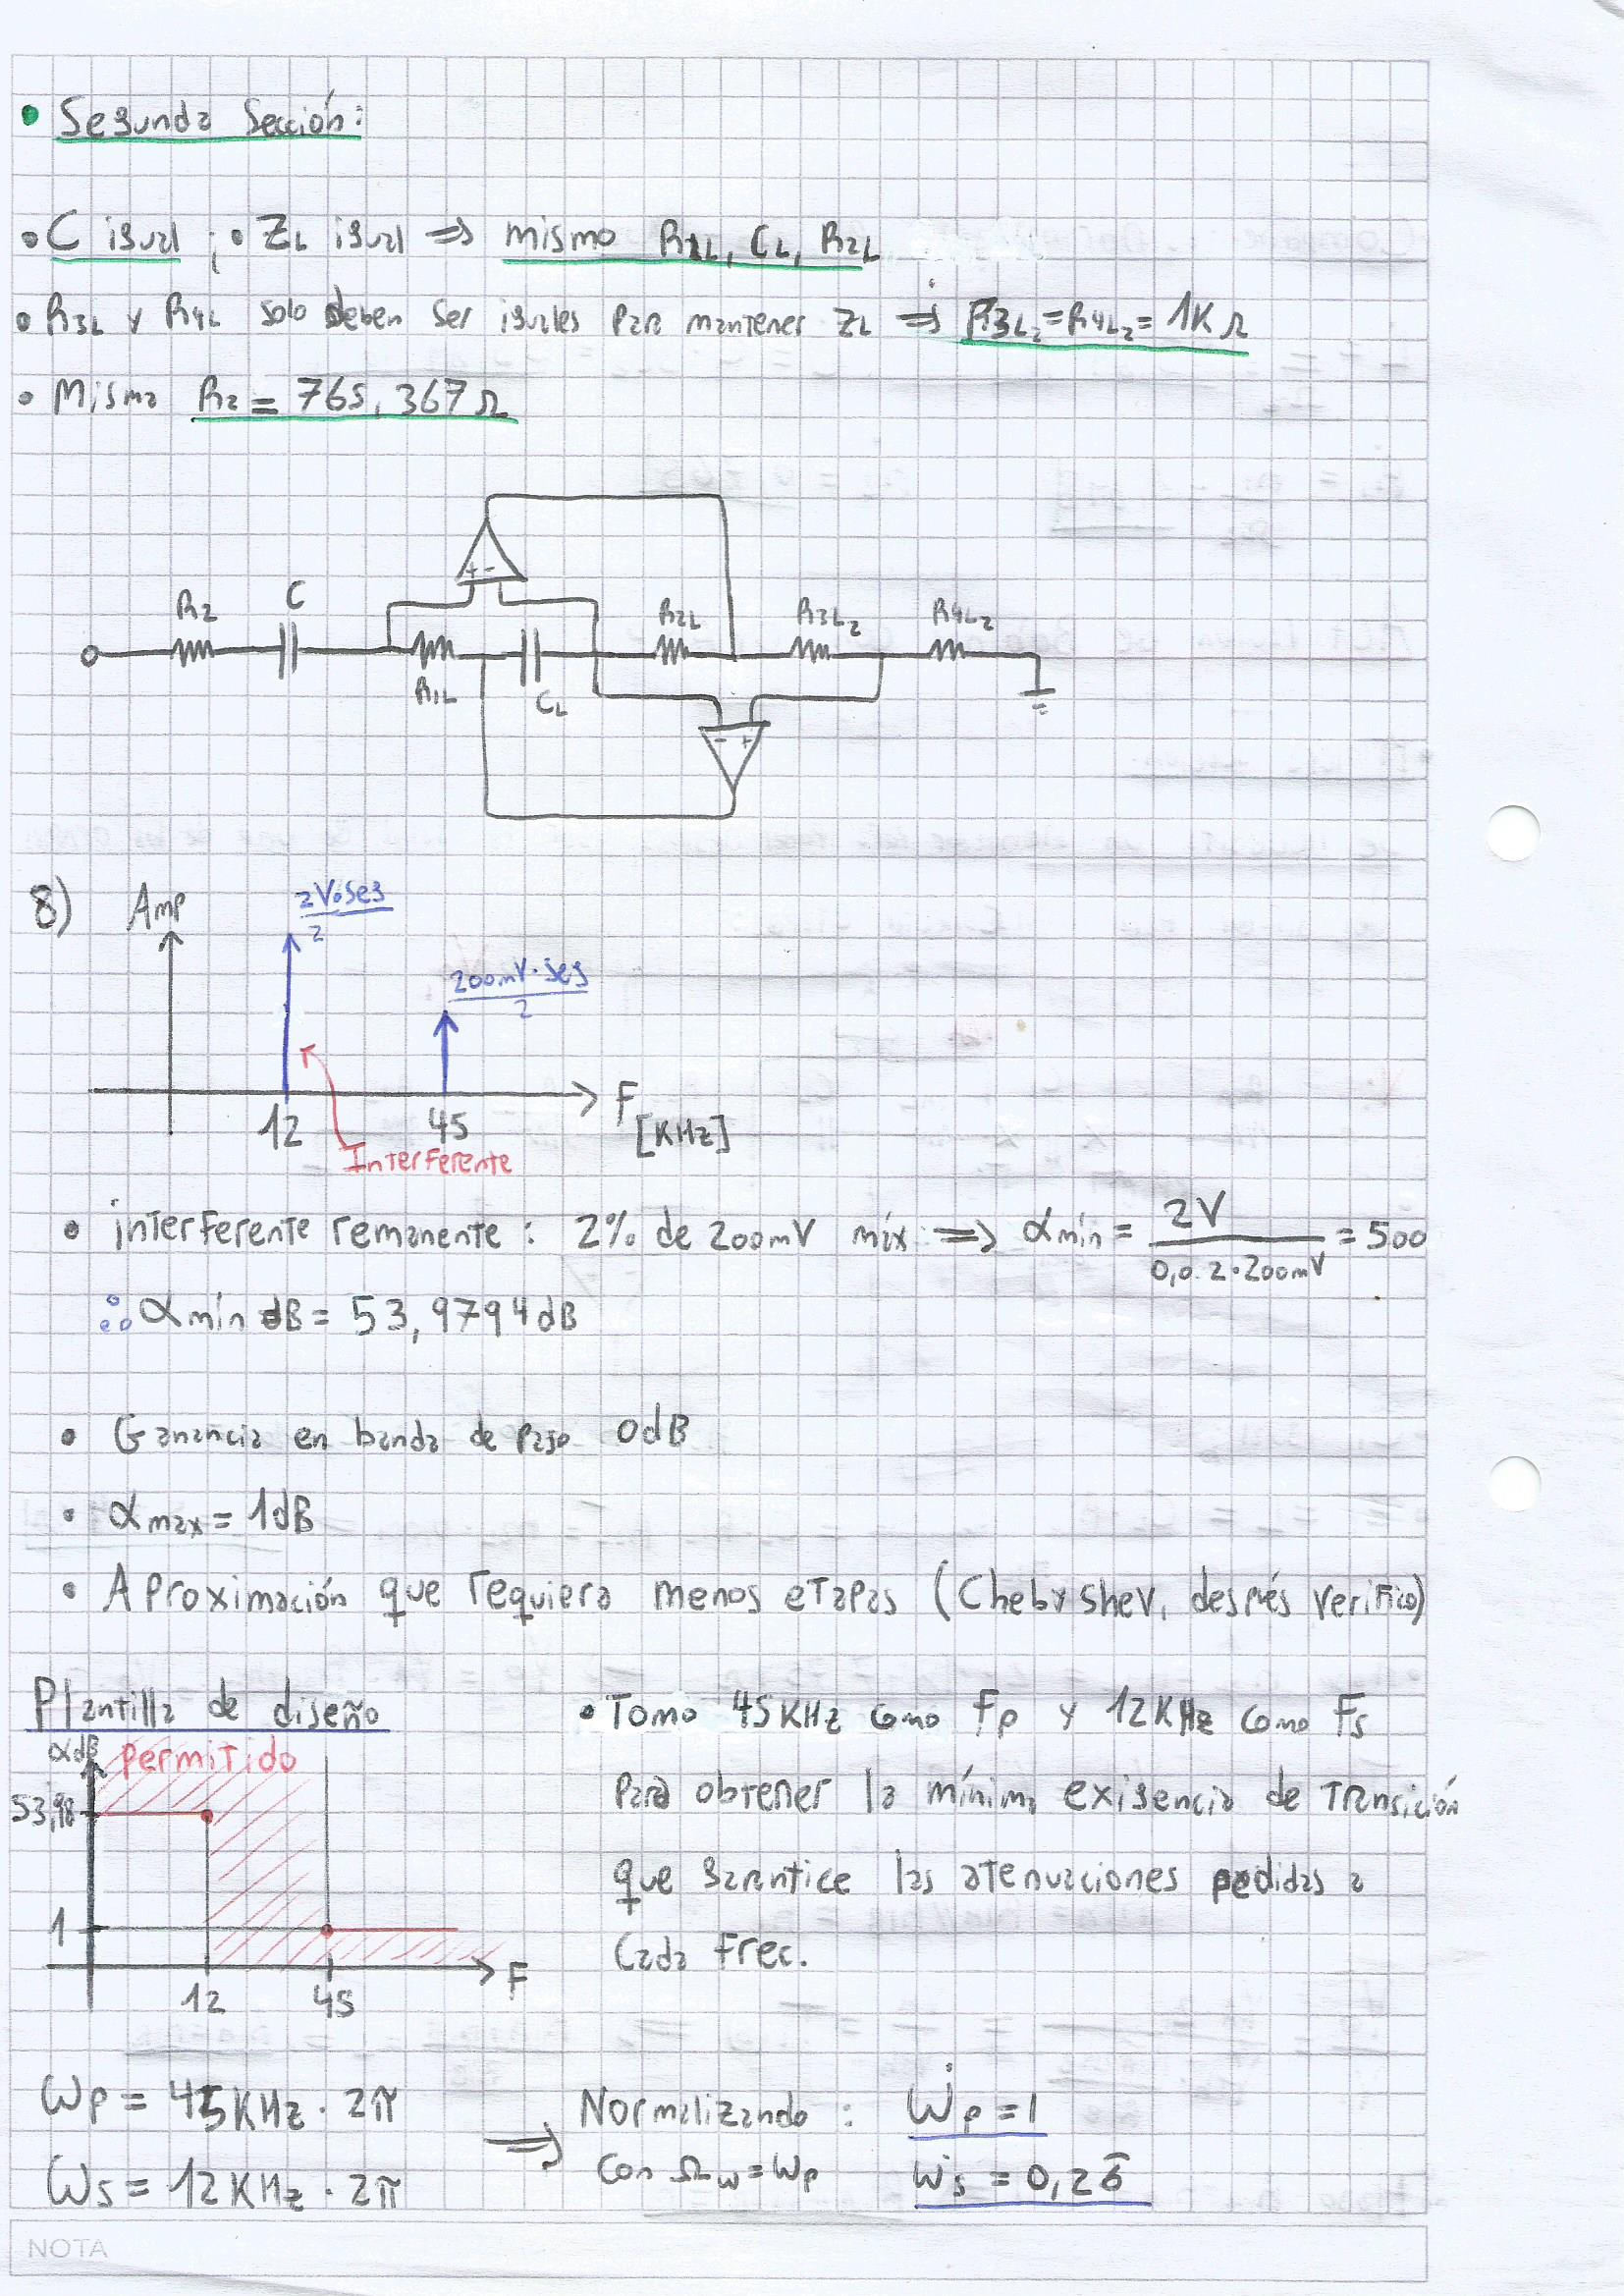 • Segunda Sección:
• C igual ; • ZL igual ⇒ mismo R1L, CL, R2L
• R3L y R4L solo deben ser iguales para mantener ZL ⇒ R3L2 = R4L2 = 1KΩ
• Misma R2 = 765,367Ω
R2 C R1L CL R2L R3L2 R4L2
+ -
- +
8) Amp
2V·seg / 2
200mV·seg / 2
12 45 F [KHz]
Interferente
• interferente remanente: 2% de 200mV máx ⇒ αmín = 2V / 0,02·200mV = 500
∴ αmín dB = 53,9794dB
• Ganancia en banda de paso 0dB
• αmax = 1dB
• Aproximación que requiera menos etapas (Chebyshev, después verifico)
Plantilla de diseño
αdB permitido
53,98
1
12 45 F
• Tomo 45KHz como Fp y 12KHz como Fs
para obtener la mínima exigencia de transición
que garantice las atenuaciones pedidas a
cada frec.
ωp = 45KHz · 2π
ωs = 12KHz · 2π
⇒ Normalizando: ωp = 1
con Ωω = ωp ωs = 0,26̄
NOTA